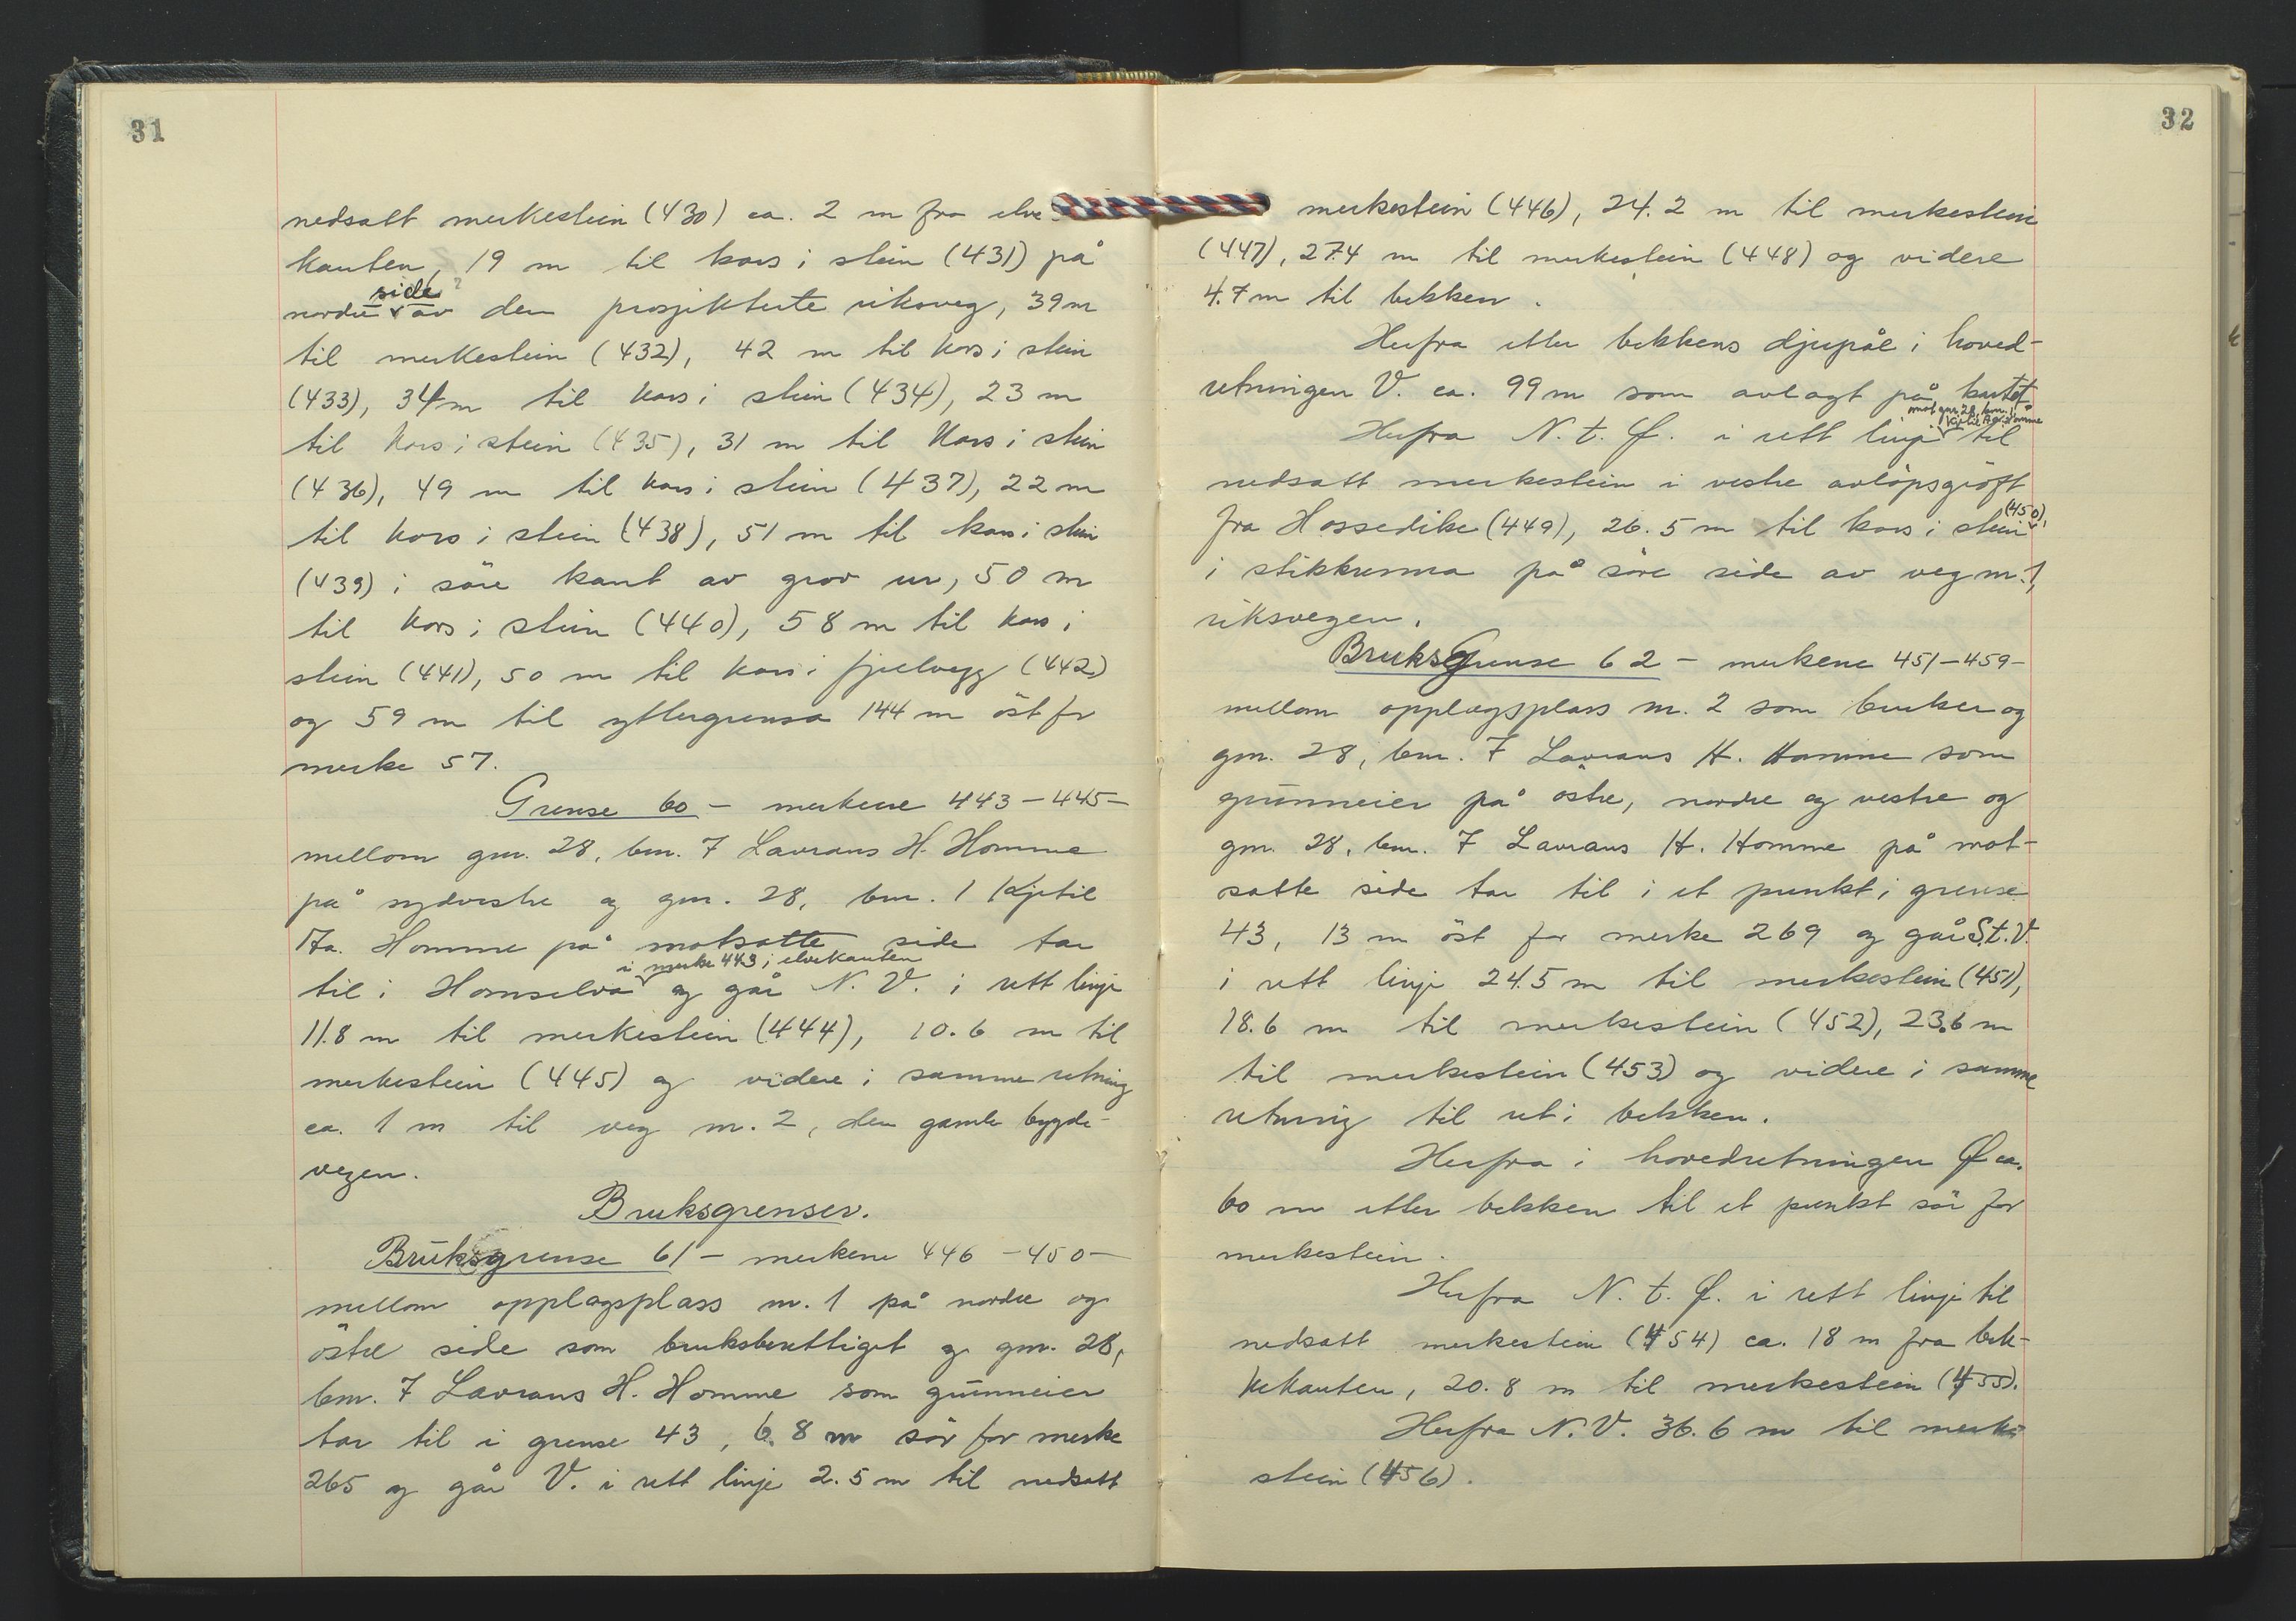 31
nedsatt merkestein (430) ca. 2 m fra elve-
kanten, 19 m til kors i stein (431) på
side
nordre av den prosjekterte riksveg, 39 m
til merkestein (432), 42 m til kors i stein
(433), 34 m til kors i stein (434), 23 m
til kors i stein (435), 31 m til kors i stein
(436), 49 m til kors i stein (437), 22 m
til kors i stein (438), 51 m til kors i stein
(439) i söre kant av grov ur, 50 m
til kors i stein (440), 58 m til kors i
stein (441), 50 m til kors i fjellvegg (442)
og 59 m til yttergrensa 144 m öst for
merke 57.
Grense 60 – merkene 443–445–
mellom gnr. 28, bnr. 7 Lavrans H. Homme
på sydvestre og gnr. 28, bnr. 1 Kjetil
Aa. Homme på motsatte side tar
i merke 443 i elvekanten
til i Homselva og går N. V. i rett linje
11.8 m til merkestein (444), 10.6 m til
merkestein (445) og videre i samme retning
ca. 1 m til veg nr. 2, den gamle bygde-
vegen.
Bruksgrenser.
Bruksgrense 61 – merkene 446–450–
mellom opplagsplass nr. 1 på nordre og
östre side som bruksberettiget og gnr. 28,
bnr. 7 Lavrans H. Homme som grunneier
tar til i grense 43, 6.8 m sör for merke
265 og går V. i rett linje 2.5 m til nedsatt
32
merkestein (446), 24.2 m til merkestein
(447), 27.4 m til merkestein (448) og videre
4.7 m til bekken.
Herfra etter bekkens djupål i hoved-
retningen V. ca. 99 m som avlagt på kartet
mot gnr. 28, bnr. 1
Kjetil Aa. Homme
Herfra N. t. Ø. i rett linje til
nedsatt merkestein i vestre avlöpsgröft
fra Hossedike (449), 26.5 m til kors i stein (450),
i stikkrenna på söre side av veg nr. 1,
riksvegen.
Bruksgrense 62 – merkene 451–459–
mellom opplagsplass nr. 2 som bruker og
gnr. 28, bnr. 7 Lavrans H. Homme som
grunneier på östre, nordre og vestre og
gnr. 28, bnr. 7 Lavrans H. Homme på mot-
satte side tar til i et punkt i grense
43, 13 m öst for merke 269 og går S.t.V.
i rett linje 24.5 m til merkestein (451),
18.6 m til merkestein (452), 23.6 m
til merkestein (453) og videre i samme
retning til ut i bekken.
Herfra i hovedretningen Ø ca.
60 m etter bekken til et punkt sör for
merkestein.
Herfra N. t. Ø. i rett linje til
nedsatt merkestein (454) ca. 18 m fra bek-
kekanten, 20.8 m til merkestein (455).
Herfra N. V. 36.6 m til merke-
stein (456).